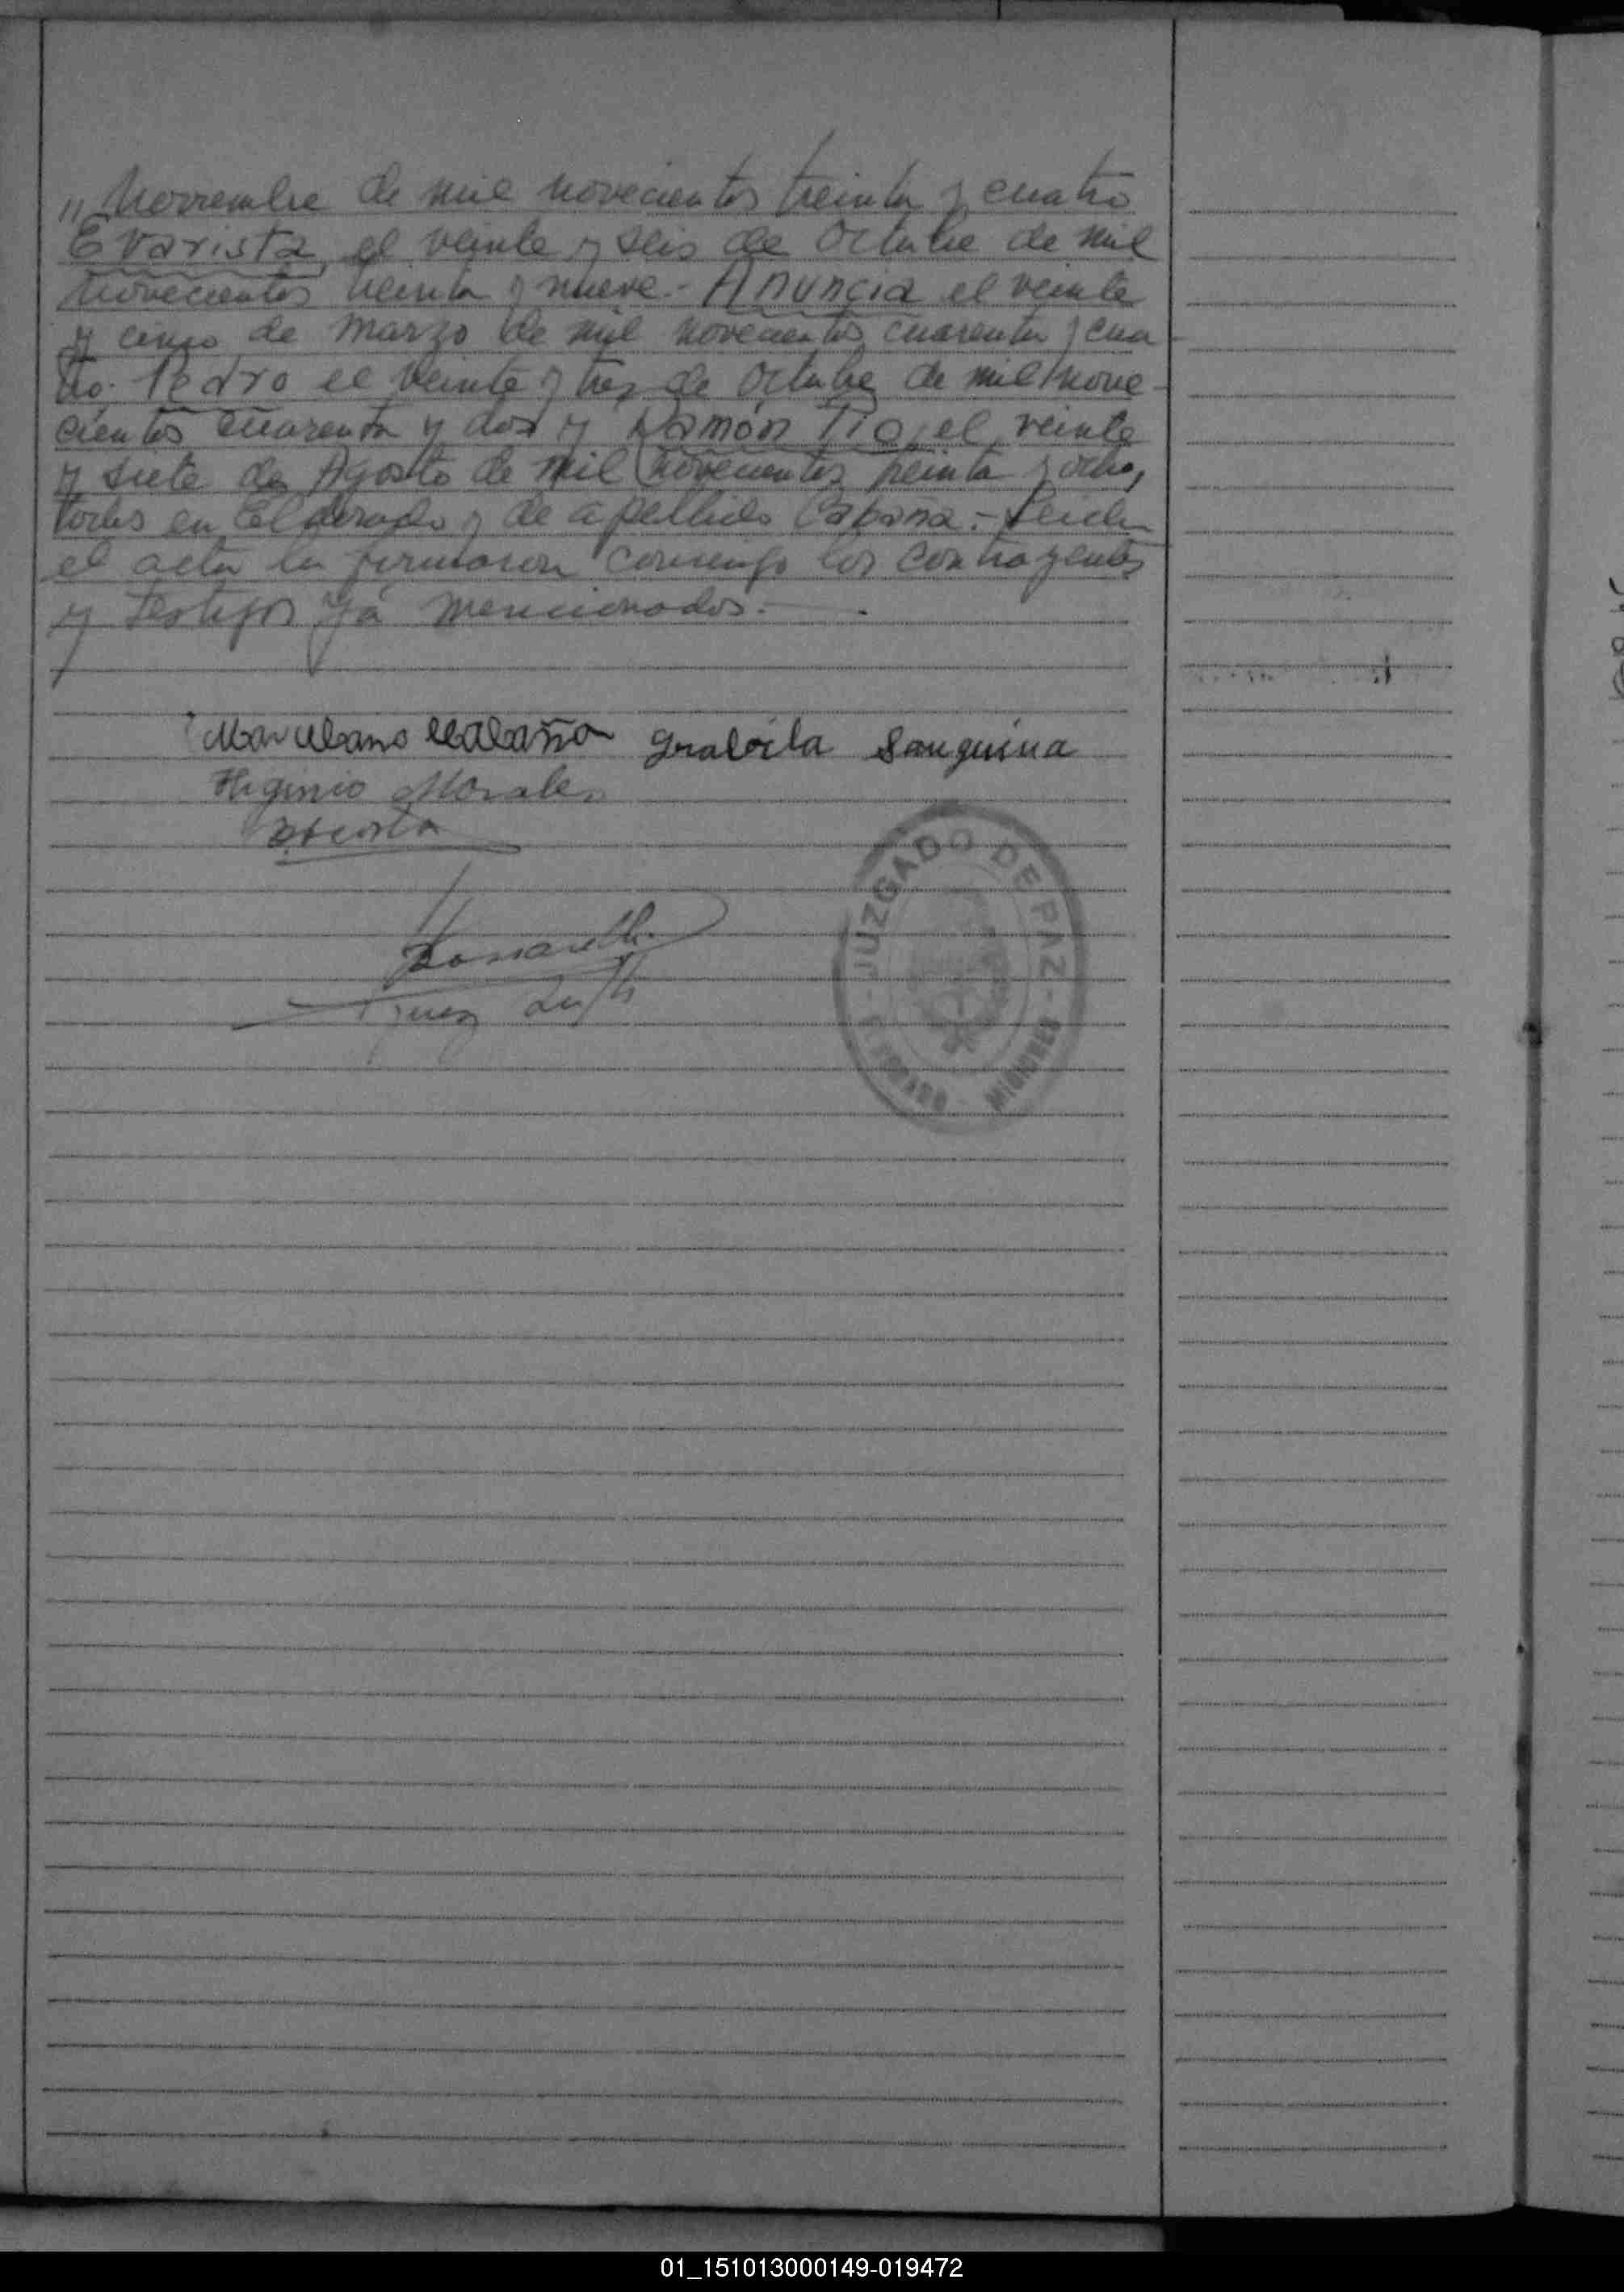 " Noviembre de mil novecientos treinta y cuatro
Evarista, el veinte y seis de Octubre de mil
novecientos treinta y nueve.- Anuncia el veinte
y cinco de Marzo de mil novecientos cuarenta y cua
tro. Pedro el veinte y tres de Octubre de mil nove-
cientos cuarenta y dos y Ramón Pío, el veinte
y siete de Agosto de mil novecientos treinta y ocho,
todos en Eldorado y de apellido Cabaña.- Leida
el acta la firmaron conmigo los contrayentes
y testigos ya mencionados.-
Marceliano Cabaña
Sanguina
Higinio Morales
Acosta
JUZGADO DE PAZ
ELDORADO MISIONES
01_151013000149-019472